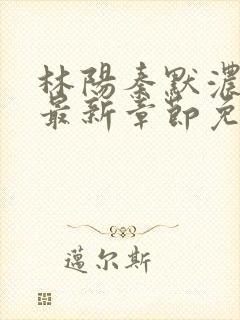 林陽秦默濃
最新章節免
邁尔斯